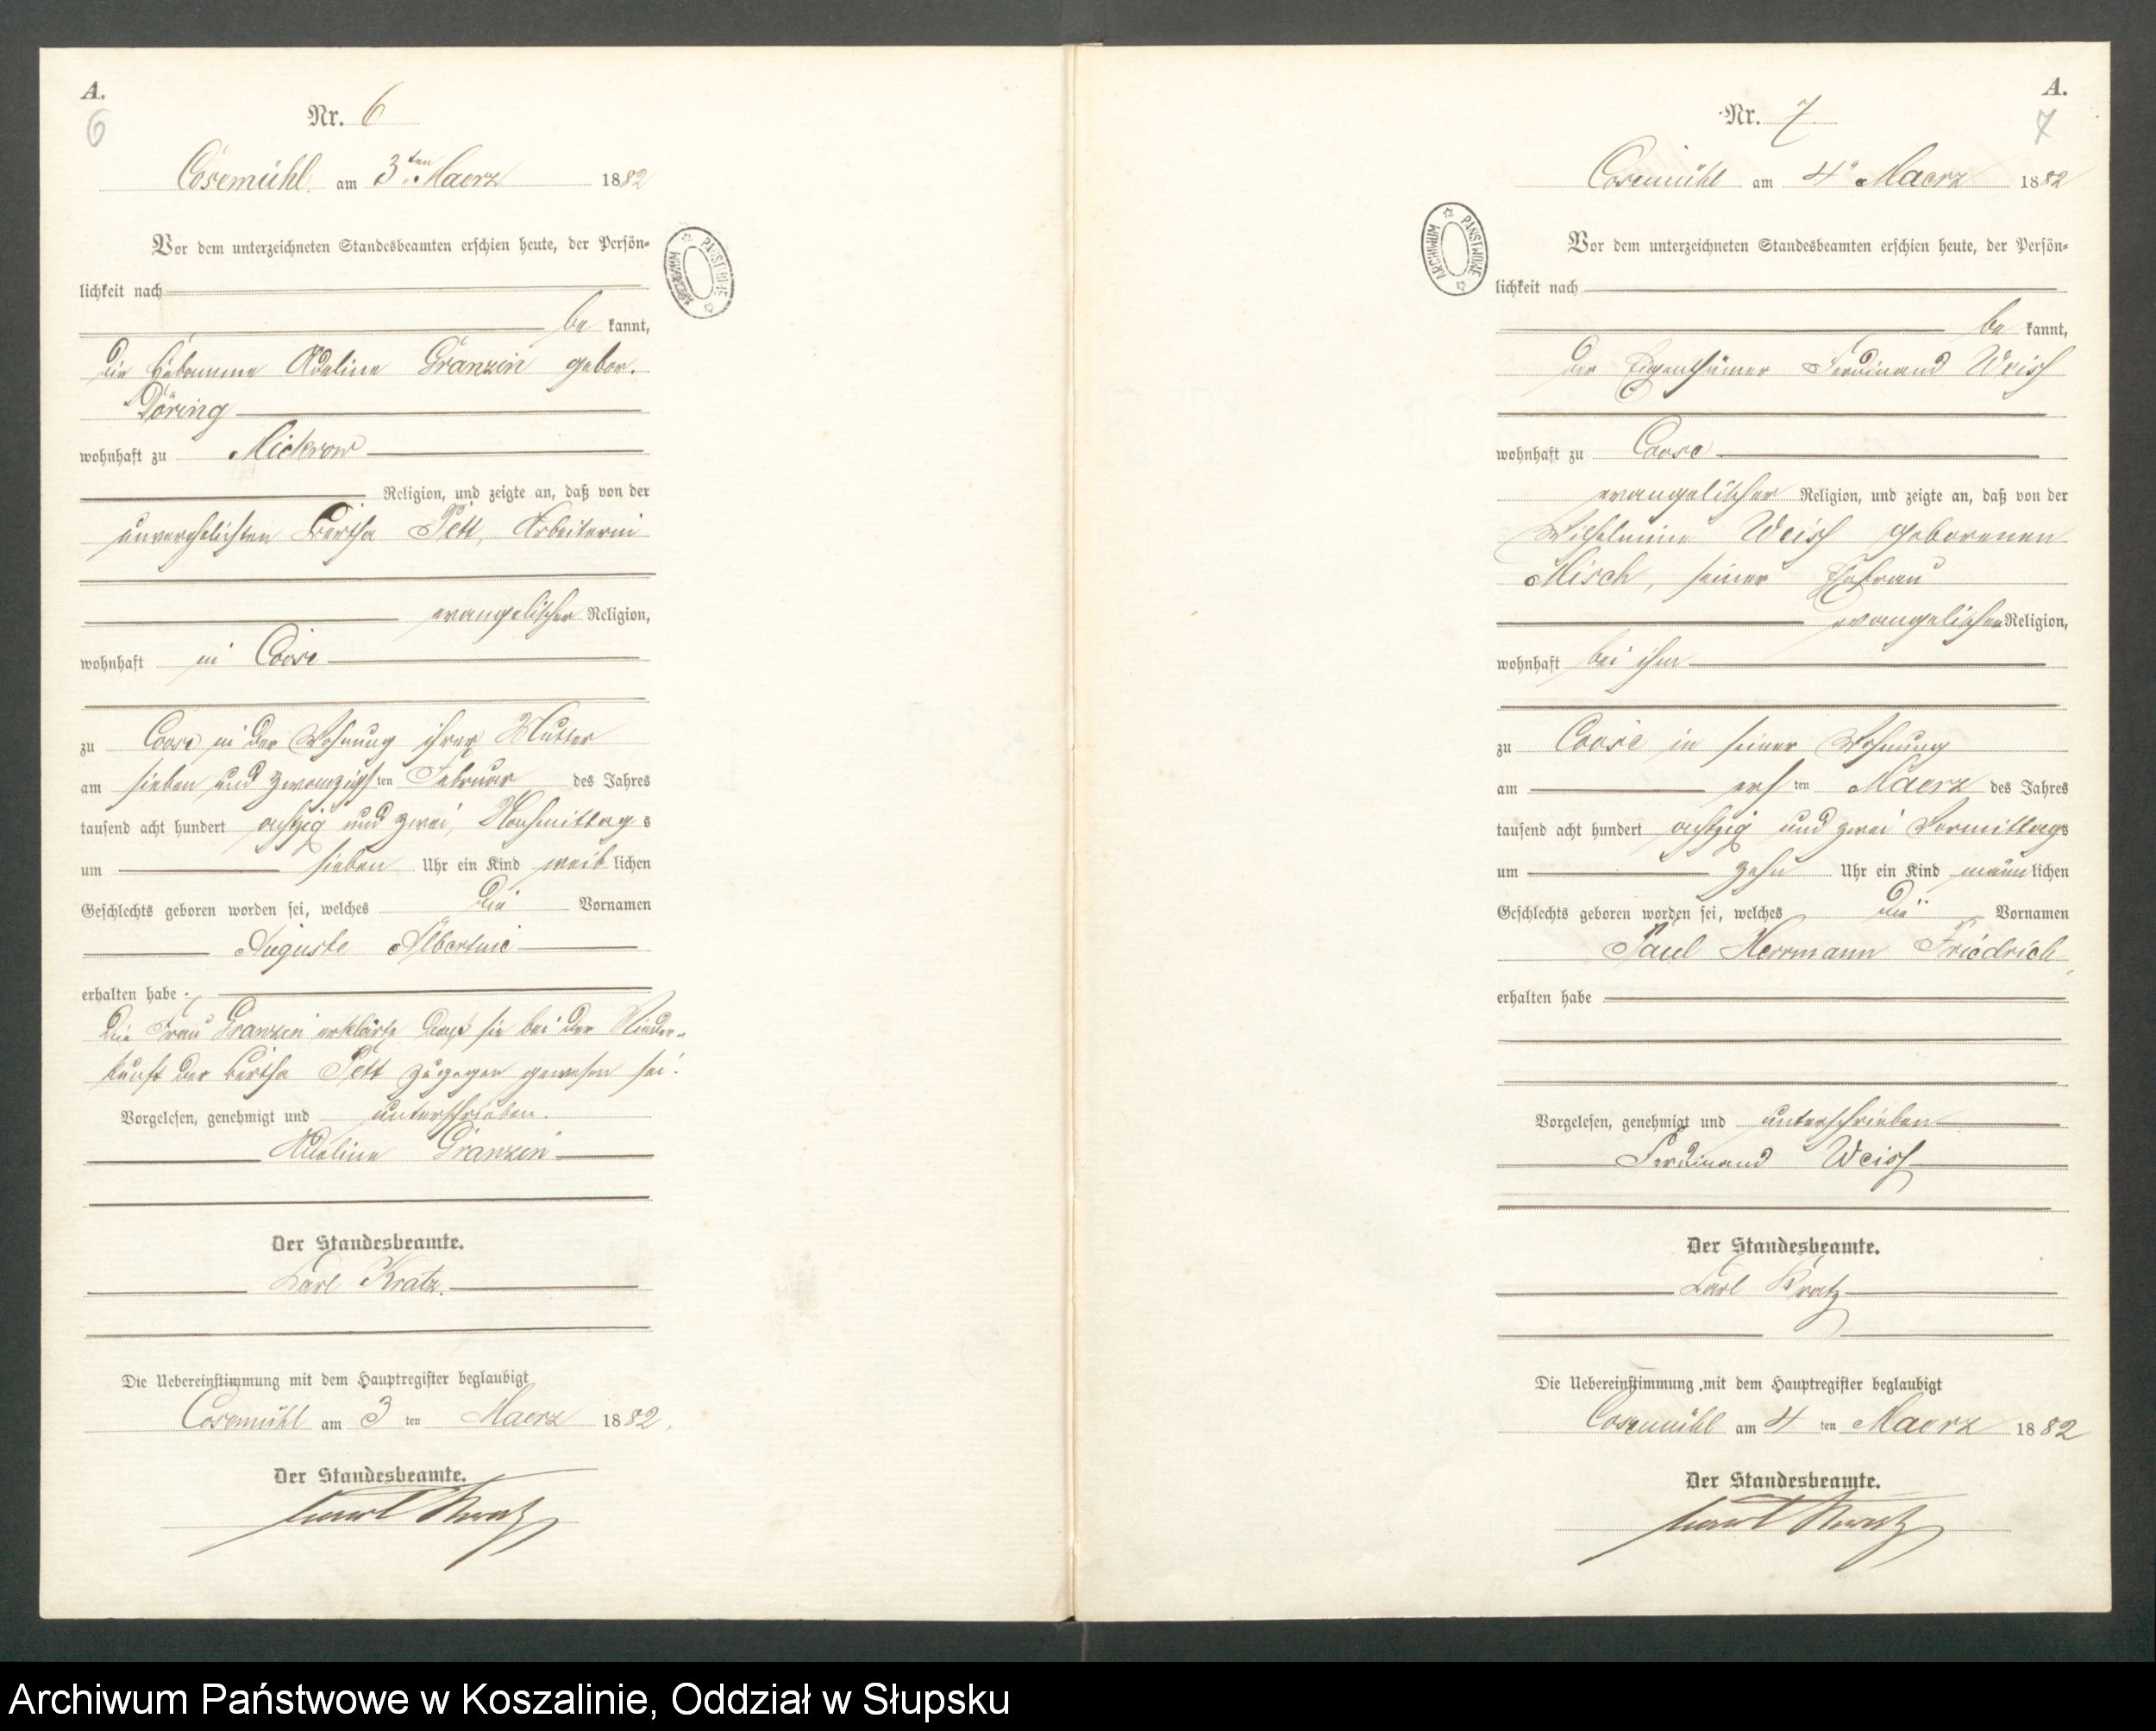 A.
6
Nr. 6
Cosemühl am 3ten Maerz 1882
Vor dem unterzeichneten Standesbeamten erschien heute, der Persön=
lichkeit nach
be kannt,
die Hebamme Adeline Granzin gebor.
Döring
wohnhaft zu Mickrow
Religion, und zeigte an, daß von der
unverehelichten Bertha Pett, Arbeiterin
evangelischer Religion,
wohnhaft in Coose
zu Coose in der Wohnung ihrer Mutter
am sieben und zwanzigsten Februar des Jahres
tausend acht hundert achtzig und zwei, Nachmittags
um sieben Uhr ein Kind weiblichen
Geschlechts geboren worden sei, welches die Vornamen
Auguste Albertine
erhalten habe.
Die Frau Granzin erklärte daß sie bei der Nieder=
kunft der Bertha Pett zugegen gewesen sei.
Vorgelesen, genehmigt und unterschrieben.
Adeline Granzin
Der Standesbeamte.
Carl Kratz.
Die Uebereinstimmung mit dem Hauptregister beglaubigt
Cosemühl am 3ten Maerz 1882.
Der Standesbeamte.
Carl Kratz
ARCHIWUM PAŃSTWOWE
A.
7
Nr. 7.
Cosemühl am 4" Maerz 1882
Vor dem unterzeichneten Standesbeamten erschien heute, der Persön=
lichkeit nach
be kannt,
der Eigenthümer Ferdinand Weiss
wohnhaft zu Coose
evangelischer Religion, und zeigte an, daß von der
Wilhelmine Weiss geborenen
Misch, seiner Ehefrau
evangelischer Religion,
wohnhaft bei ihm
zu Coose in seiner Wohnung
am ersten Maerz des Jahres
tausend acht hundert achtzig und zwei Vormittags
um zehn Uhr ein Kind männlichen
Geschlechts geboren worden sei, welches die Vornamen
Paul Herrmann Friedrich
erhalten habe
Vorgelesen, genehmigt und unterschrieben
Ferdinand Weiss
Der Standesbeamte.
Carl Kratz
Die Uebereinstimmung mit dem Hauptregister beglaubigt
Cosemühl am 4ten Maerz 1882
Der Standesbeamte.
Carl Kratz
ARCHIWUM PAŃSTWOWE
Archiwum Państwowe w Koszalinie, Oddział w Słupsku